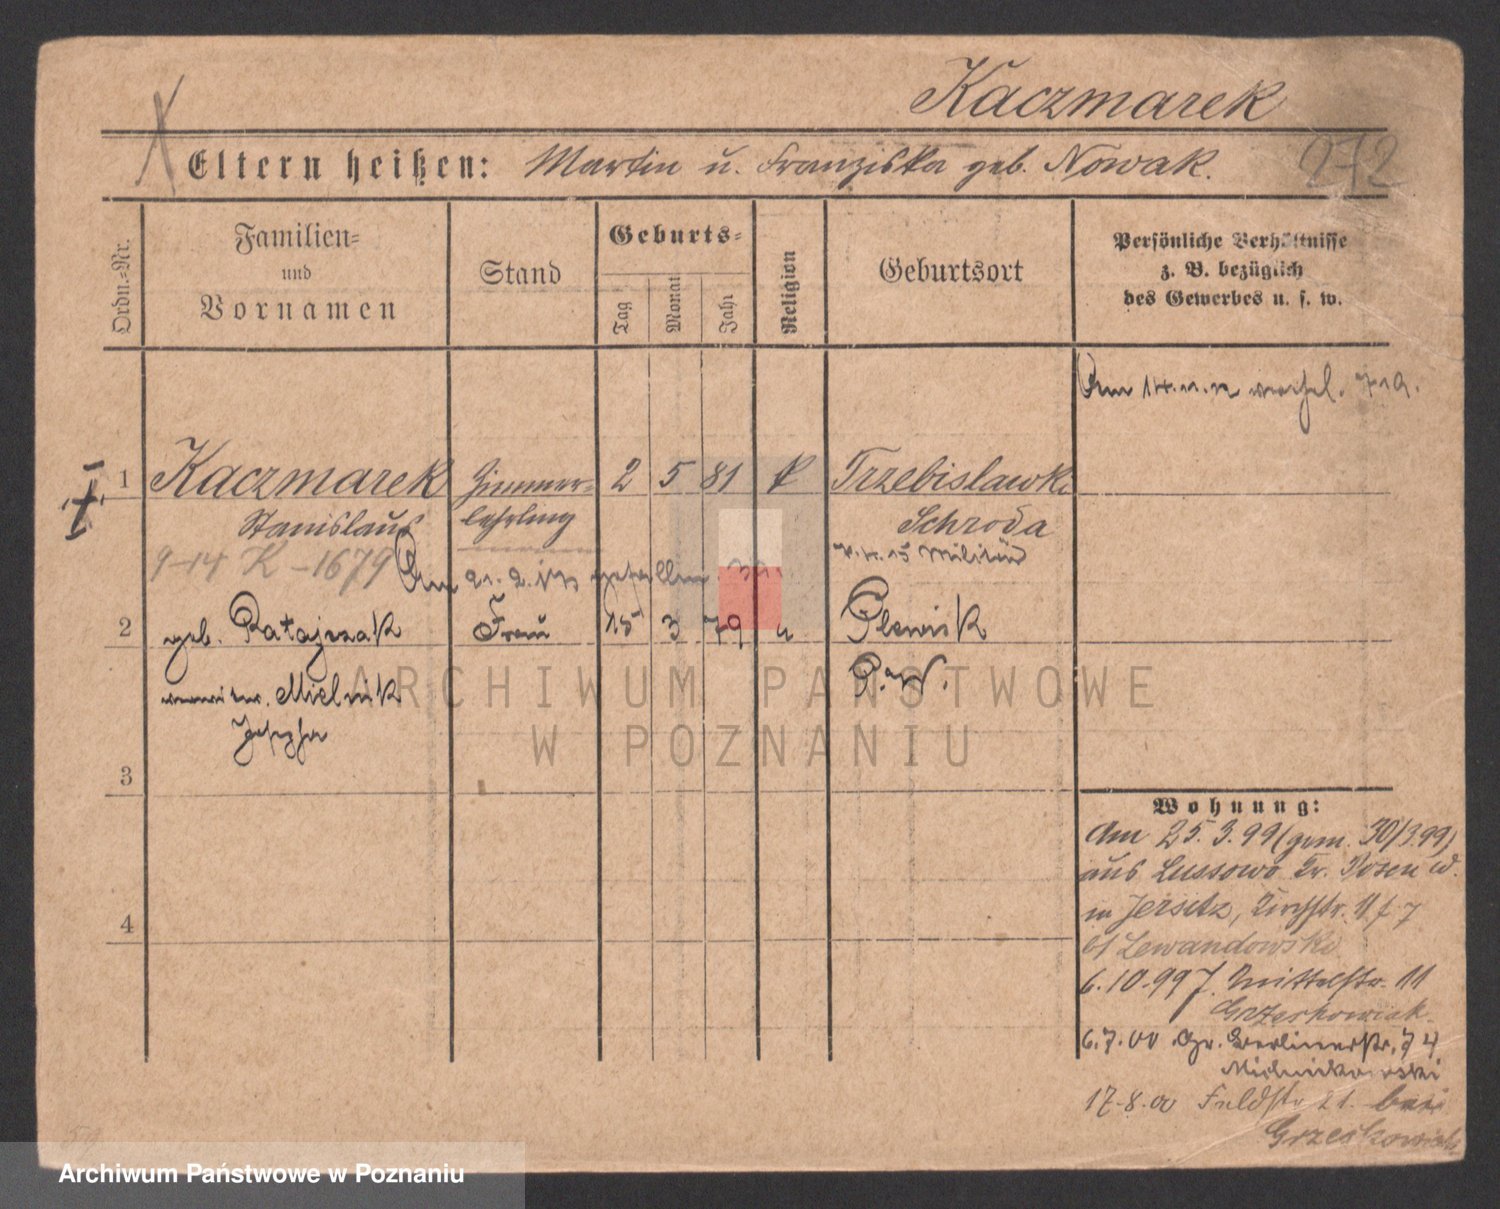 Kaczmarek
Eltern heißen: Martin u. Franziska geb. Nowak.
272
Ordn.-Nr.
Familien-
und
Vornamen
Stand
Geburts-
Tag
Monat
Jahr
Religion
Geburtsort
Persönliche Verhältnisse
z. B. bezüglich
des Gewerbes u. s. w.
Am 14.
1 Kaczmarek Zimmer- 2 5 81 k Trzebislawki
Stanislaus lehrling Schroda
9-14 K-1679 Militär
Am 21. 2. gefallen
2 geb. Ratajczak Frau 15 3 79 Plewisk
P. W.
Mielnik
Josepha
3
4
Wohnung:
Am 25.3.99 (gem. 30/3.99)
aus Lussowo Kr. Posen W.
in Jersitz, 11 f 7
bei Lewandowski
6.10.99 Mittelstr. 11
Grzeskowiak
6.7.00 Gr. Berlinerstr. 74
17.8.00 Feldstr 21. bei
Grzeskowiak
ARCHIWUM PAŃSTWOWE
W POZNANIU
Archiwum Państwowe w Poznaniu